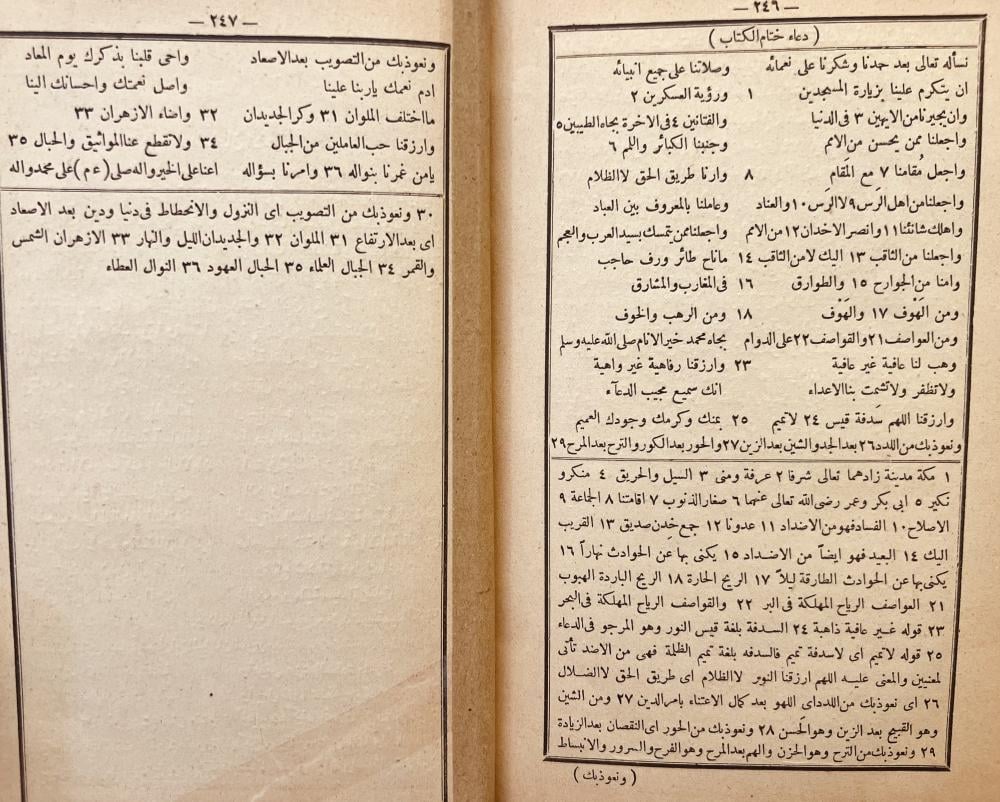 — ٢٤٦ —
( دعاء ختام الكتاب )
نسأله تعالى بعد حمدنا وشكرنا على نعمائه وصلاتنا على جميع انبيائه
ان يتكرم علينا بزيارة المسجدين ١ ورؤية العسكرين ٢
وان يجيرنا من الايهمين ٣ فى الدنيا والفتانين ٤ فى الاخرة بجاه الطيبين ٥
واجعلنا ممن يحسن من الامم وجنبنا الكبائر واللم ٦
واجعل مُقامنا ٧ مع المَقام ٨ وارنا طريق الحق لا الظلام
واجعلنا من اهل الرَس ٩ لا الرَس ١٠ والعناد وعاملنا بالمعروف بين العباد
واهلك شانئنا ١١ وانصر الاخدان ١٢ من الامم واجعلنا ممن يتمسك بسيد العرب والعجم
واجعلنا من الثاقب ١٣ اليك لا من الثاقب ١٤ ماناح طائر ورف حاجب
وامنا من الجوارح ١٥ والطوارق ١٦ فى المغارب والمشارق
ومن الهَوْف ١٧ والهَوْف ١٨ ومن الرهب والخوف
ومن العواصف ٢١ والقواصف ٢٢ على الدوام بجاه محمد خير الانام صلى الله عليه وسلم
وهب لنا عافية غير عافية ٢٣ وارزقنا رفاهية غير واهية
ولا تظفر ولا تشمت بنا الاعداء انك سميع مجيب الدعآء
وارزقنا اللهم سَدفة قيس ٢٤ لاتميم ٢٥ بمنك وكرمك وجودك العميم
ونعوذبك من اللدد ٢٦ بعد الجد والشين بعد الزين ٢٧ والحور بعد الكور والترح بعد المرح ٢٩
١ مكة مدينة زادهما تعالى شرفا ٢ عرفة ومنى ٣ السيل والحريق ٤ منكر و
نكير ٥ ابى بكر وعمر رضى الله تعالى عنهما ٦ صغار الذنوب ٧ اقامتنا ٨ الجماعة ٩
الاصلاح ١٠ الفساد فهو من الاضداد ١١ عدونا ١٢ جمع خِدن صديق ١٣ القريب
اليك ١٤ البعيد فهو ايضاً من الاضداد ١٥ يكنى بها عن الحوادث نهاراً ١٦
يكنى بها عن الحوادث الطارقة ليلاً ١٧ الريح الحارة ١٨ الريح الباردة الهبوب
٢١ العواصف الرياح المهلكة فى البر ٢٢ والقواصف الرياح المهلكة فى البحر
٢٣ قوله غير عافية ذاهبة ٢٤ السدفة بلغة قيس النور وهو المرجو فى الدعاء
٢٥ قوله لاتميم اى لاسدفة تميم فالسدفه بلغة تميم الظلمة فهى من الاضد تأتى
لمعنيين والمعنى عليه اللهم ارزقنا النور لا الظلام اى طريق الحق لا الضلال
٢٦ اى نعوذبك من اللدد اى اللهو بعد كمال الاعتناء بامر الدين ٢٧ ومن الشين
وهو القبيح بعد الزين وهو الحَسن ٢٨ ونعوذبك من الحور اى النقصان بعد الزيادة
٢٩ ونعوذبك من الترح وهو الحزن والهم بعد المرح وهو الفرح والسرور والانبساط
( ونعوذبك )
— ٢٤٧ —
ونعوذبك من التصويب بعد الاصعاد واحى قلبنا بذكرك يوم المعاد
ادم نعمك ياربنا علينا واصل نعمتك واحسانك الينا
ما اختلف الملوان ٣١ وكر الجديدان ٣٢ واضاء الازهران ٣٣
وارزقنا حب العاملين من الجبال ٣٤ ولا تقطع عنا المواثيق والحبال ٣٥
يامن غمرنا بنواله ٣٦ وامرنا بسؤاله اعنا على الخير واله صلى (ع م) على محمد واله
٣٠ ونعوذبك من التصويب اى النزول والانحطاط فى دنيا ودين بعد الاصعاد
اى بعد الارتفاع ٣١ الملوان ٣٢ والجديدان الليل والنهار ٣٣ الازهران الشمس
والقمر ٣٤ الجبال العلماء ٣٥ الحبال العهود ٣٦ النوال العطاء